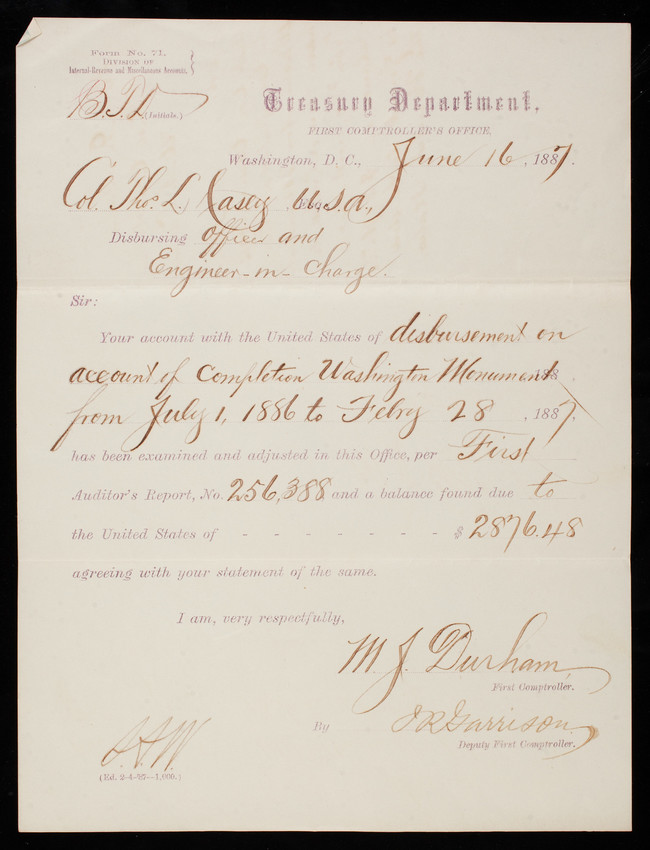 Form No. 71.
Division of
Internal-Revenue and Miscellaneous Accounts.
(Initials.)
Treasury Department,
FIRST COMPTROLLER'S OFFICE,
Washington, D. C., June 16, 1887.
Col. Thos. L. Casey U.S.A.,
Disbursing officer and
Engineer-in-charge.
Sir:
Your account with the United States of disbursement on
account of Completion Washington Monument 188 .
from July 1, 1886 to Febry 28, 1887.
has been examined and adjusted in this Office, per First
Auditor's Report, No. 256,388 and a balance found due to
the United States of - - - - - - - $ 2876.48
agreeing with your statement of the same.
I am, very respectfully,
M. J. Durham,
First Comptroller.
By J R Garrison
Deputy First Comptroller.
(Ed. 2-4-'87--1,000.)